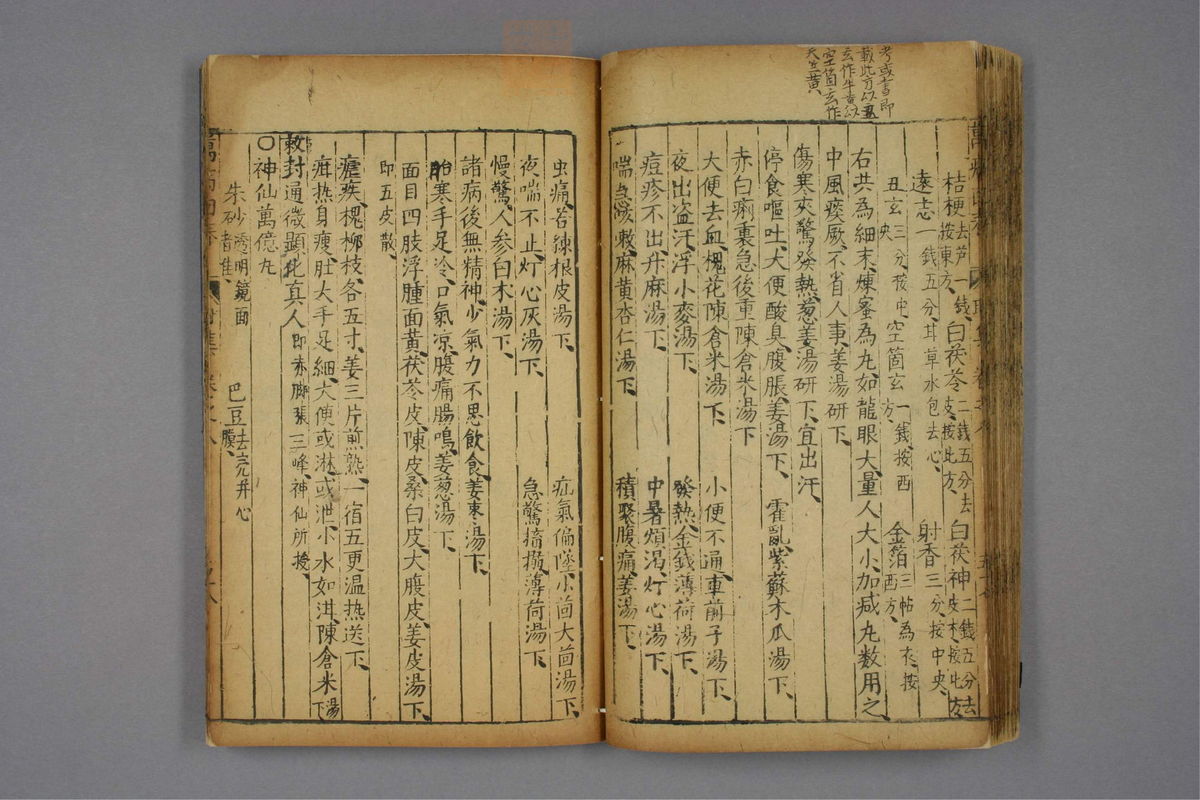 考或書即
載此方以丑
玄作牛黃以
空箇玄作
天竺黃
桔梗去芦一錢按東方、白茯苓二錢五分去皮、按西方、白茯神二錢五分去皮木、按北方
遠志一錢五分、甘草水包去心、射香三分、按中央、
丑玄三分按中央、空箇玄一錢按西方、金箔三帖為衣、按西方、
右共為細末、煉蜜為丸、如龍眼大、量人大小、加减丸数用之、
中風瘈厥、不省人事、姜湯研下、
傷寒夾驚發熱、葱姜湯研下、宜出汗、
停食嘔吐、大便酸臭、腹脹、姜湯下、霍亂、紫蘇木瓜湯下、
赤白痢裏急後重、陳倉米湯下
大便去血、槐花陳倉米湯下、小便不通、車前子湯下、
夜出盗汗、浮小麥湯下、發熱、金錢薄荷湯下、
痘疹不出、升麻湯下、中暑煩渴、灯心湯下、
喘急咳嗽、麻黄杏仁湯下、積聚腹痛、姜湯下、
虫痛、苦練根皮湯下、疝氣偏墜、小茴大茴湯下、
夜啼不止、灯心灰湯下、急驚搐搦、薄荷湯下、
慢驚、人参白术湯下、
諸病後無精神、少氣力、不思飲食、姜棗湯下、
胎寒手足冷、口氣凉、腹痛腸鳴、姜葱湯下、
面目四肢浮腫面黄、茯苓皮、陳皮、桑白皮、大腹皮、姜皮湯下、
即五皮散、
瘧疾、槐柳枝、各五寸、姜三片煎熟、一宿五更温热送下、
疳热身瘦、肚大手足細、大便或淋、或泄、小水如泔、陳倉米湯下
敕封通微顯化真人即赤脚張三峰、神仙所授、
〇神仙萬億丸
朱砂透明鏡面者佳、巴豆去売并心膜、